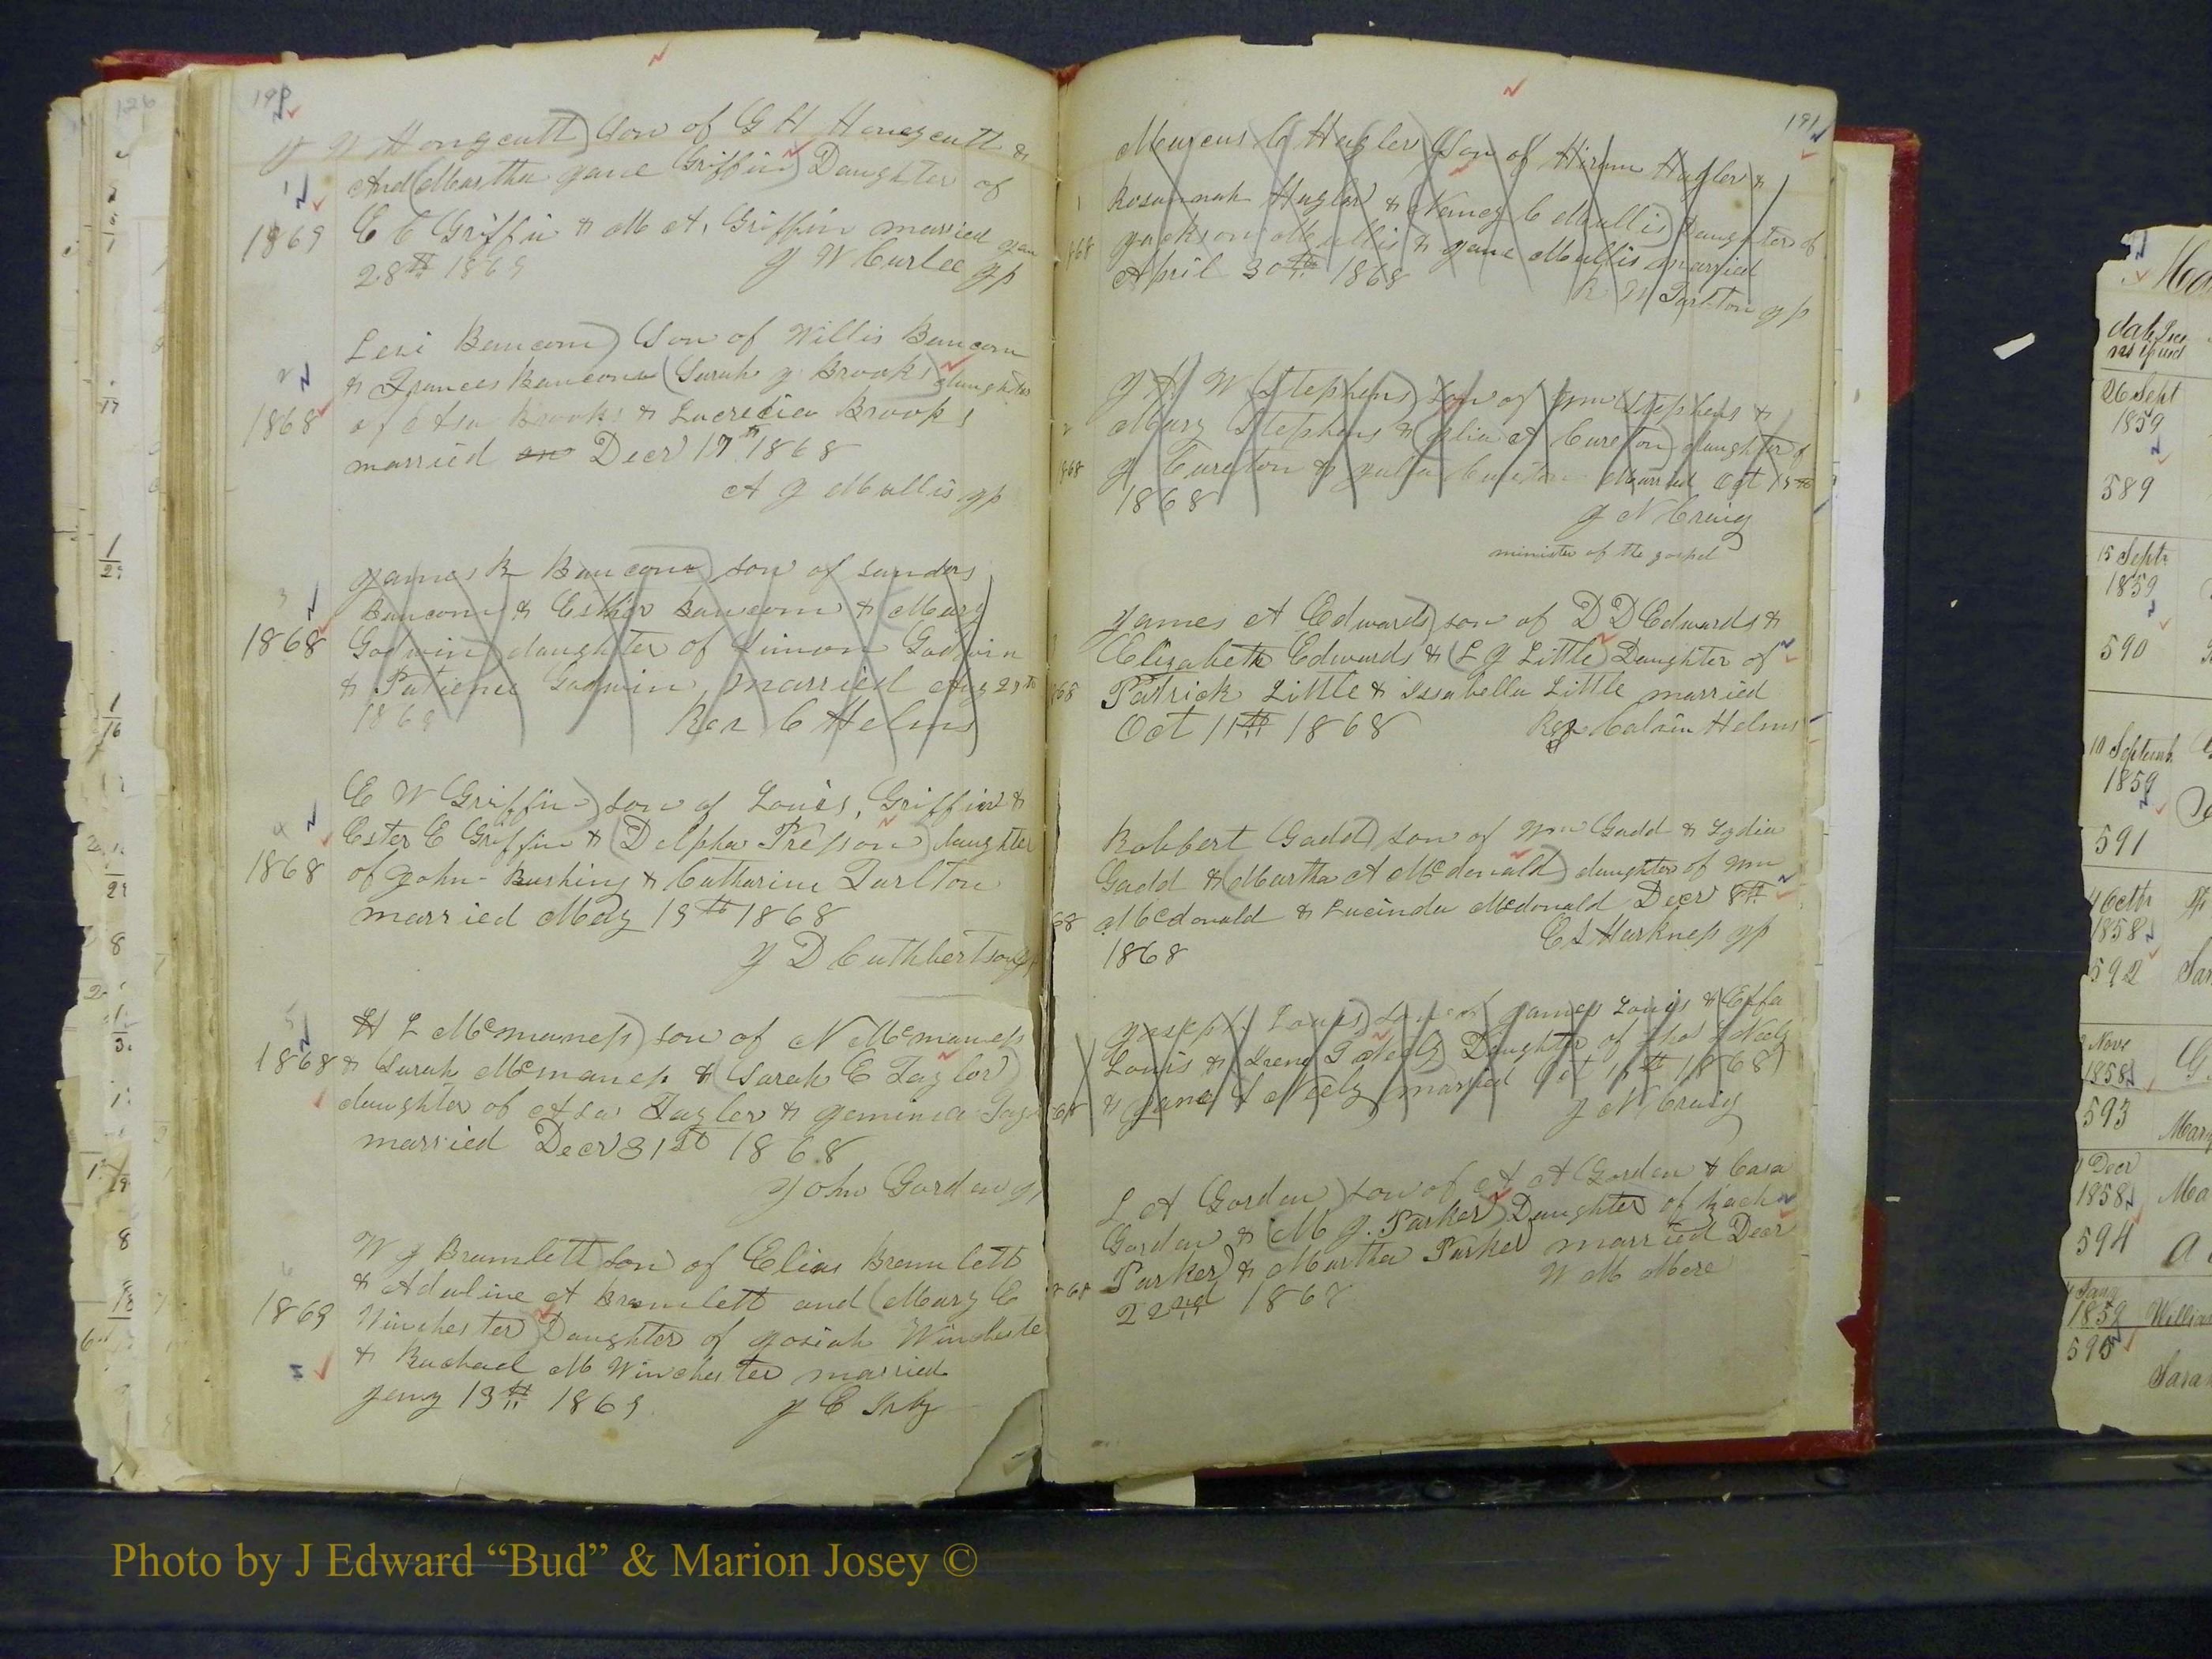 190
J W Honeycutt) Son of G H Honeycutt &
And (Martha Jane Griffin) Daughter of
1869 E C Griffin & M A. Griffin married Jan
28th 1869 J W Curlee JP
2
Levi Baucom) Son of Willis Baucom
& Frances Baucom (Sarah J Brooks) daughter
1868 of Asa Brooks & Lucrecia Brooks
married on Decr 17th 1868
A J Mullis JP
3
James R Baucom) son of Sanders
Baucom & Esther Baucom & Mary
1868 Godwin) daughter of Simon Godwin
& Patience Godwin, married Aug 27th
1868 Rev C Helms
4
E W Griffin) son of Louis, Griffin &
Ester E Griffin & (Delpha Presson) daughter
1868 of John Bushing & Catharine Tarlton
married May 19th 1868
J D Cuthbertson JP
5
H L McManess) son of N McManess
1868 & Sarah McManess & (Sarah E Taylor)
daughter of Asa Taylor & Jemimia
married Decr 31st 1868
John Gordon
6
W J Bramlett) son of Elias Bramlett
& Adaline A Bramlett and (Mary E
1869 Winchester) Daughter of Josiah Winchester
& Rachael M Winchester married
Jany 13th 1869 J E Irby
191
Marcus C Hagler) Son of Hiram Hagler &
1 Rosannah Hagler & (Nancy C Mullis) Daughter of
868 Jackson Mullis & Jane Mullis married
April 30th 1868
R W Tarlton JP
J A W Stephens) Son of Wm Stephens &
2 Mary Stephens & (Julia A Cureton) daughter of
868 J Cureton & Julia Cureton Married Oct 15th
1868
J N Craig
minister of the gospel
James A Edwards) son of D D Edwards &
Elizabeth Edwards & (L J Little) Daughter of
868 Patrick Little & Issabella Little married
Oct 11th 1868 Rev Calvin Helms
Robbert Gadd) son of Wm Gadd & Lydia
Gadd & (Martha A McDonald) daughter of Wm
68 McDonald & Lucinda McDonald Decr 8th
1868 C L Harkness JP
Joseph Louis) son of James Louis & Effa
Louis & (Irene T Neely) Daughter of Thos J Neely
68 & Jane L Neely married Oct 15th 1868
J N Craig
L A Gordon) son of A A Gordon & Casa
Gordon & (M J. Parker) Daughter of Zach
868 Parker & Martha Parker married Decr
22nd 1868 W M Mere
26 Sept
1859
589
15 Septr
1859
590
10 Septemb
1859
591
4 Octr
1858
592
Nove
1858
593
Decr
1858
594
Jany
1859
595
Sara
Photo by J Edward “Bud” & Marion Josey ©